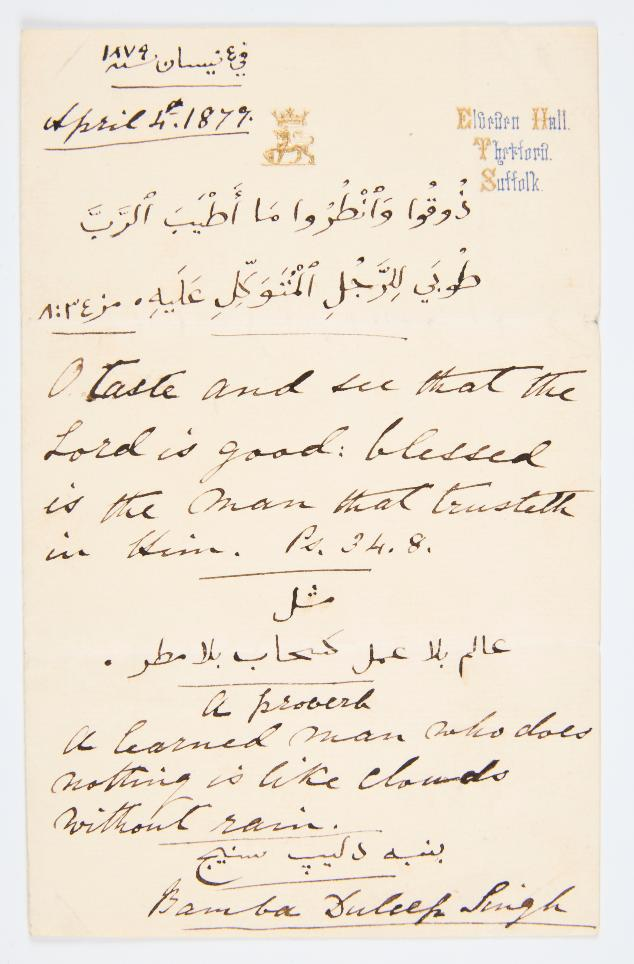 في ٤ نيسان سنة ١٨٧٩
April 4th. 1879.
Elveden Hall.
Thetford.
Suffolk.
ذُوقُوا وَٱنْظُرُوا مَا أَطْيَبَ ٱلرَّبَّ
طُوبَي لِلرَّجُلِ ٱلْمُتَوَكِّلِ عَلَيهِ. مز ٣٤:٨
O taste and see that the
Lord is good: blessed
is the man that trusteth
in Him. Ps. 34. 8.
مثل
عالم بلا عمل كسحاب بلا مطر .
A proverb
A learned man who does
nothing is like clouds
without rain.
بمبه دليپ سنيج
Bamba Duleep Singh